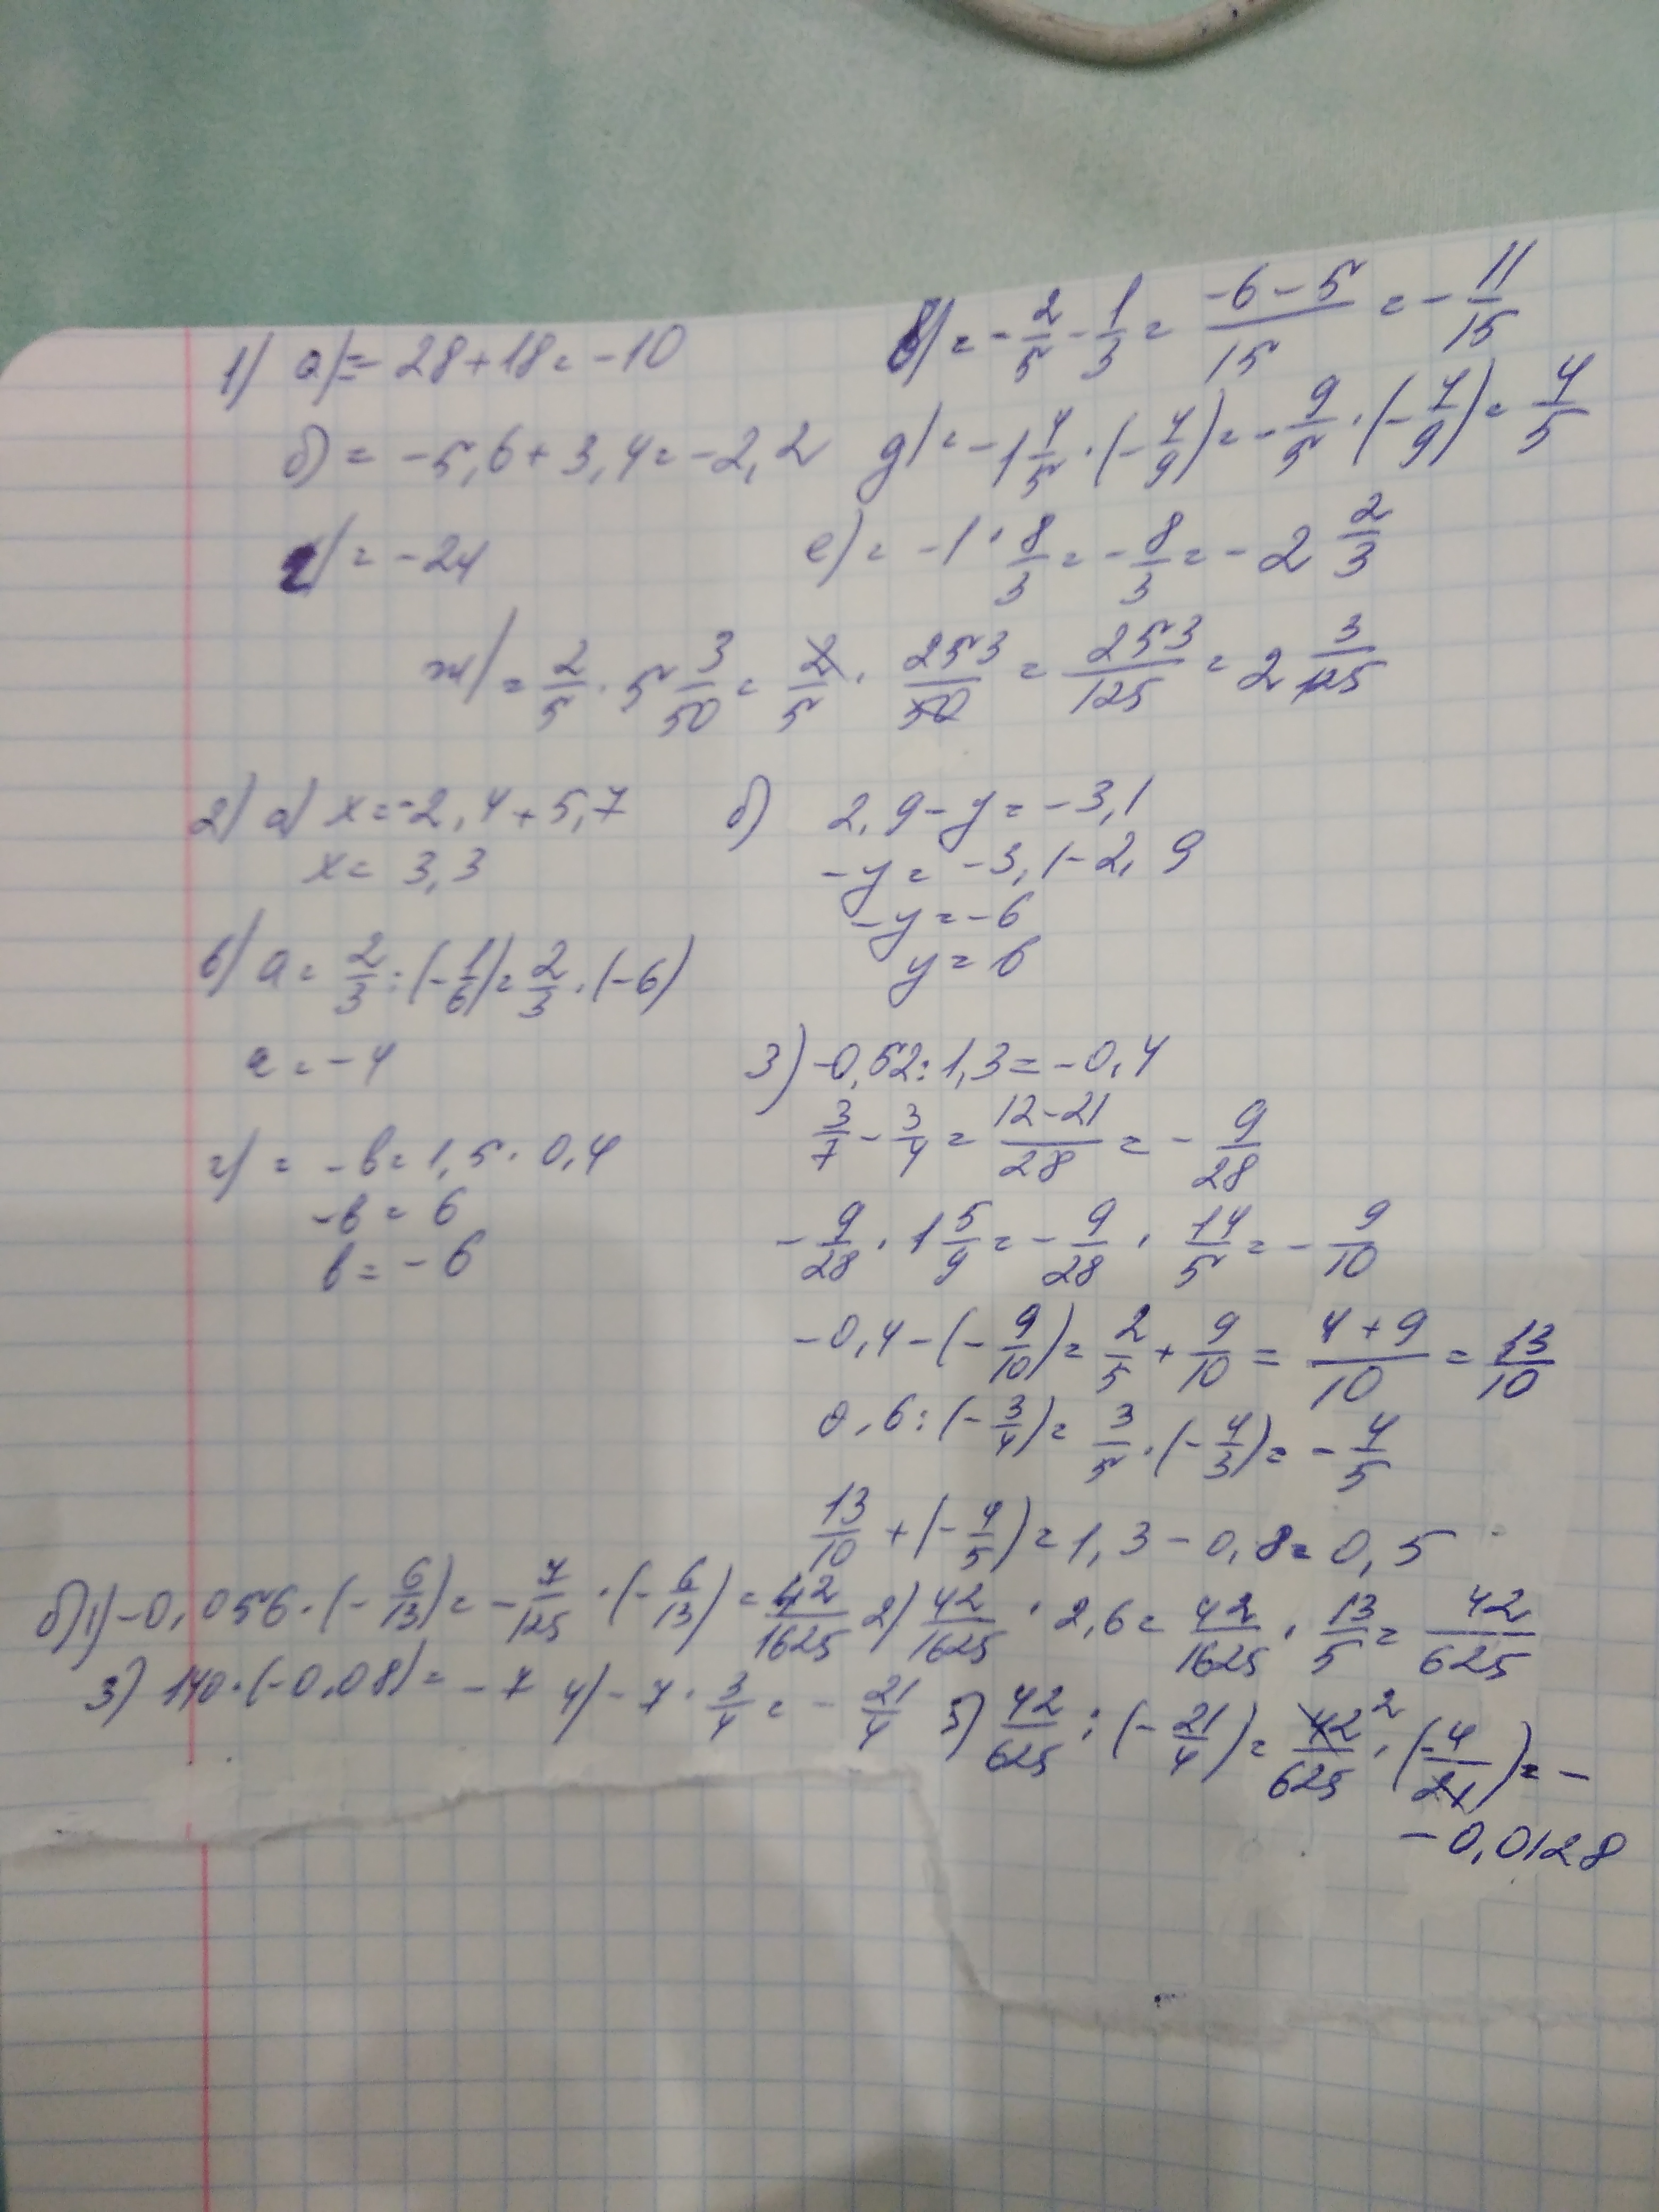 1) а) = -28+18=-10
б) = -5,6+3,4=-2,2
в) = -2/5 - 1/3 = (-6-5)/15 = -11/15
г) = -24
д) = -1 4/5 · (-4/9) = -9/5 · (-4/9) = 4/5
е) = -1 · 8/3 = -8/3 = -2 2/3
ж) = 2/5 · 5 3/50 = 2/5 · 253/50 = 253/125 = 2 3/125
2) а) x=-2,4+5,7
x= 3,3
б) 2,9-y=-3,1
-y= -3,1-2,9
-y=-6
y=6
в) a= 2/3 : (-1/6) = 2/3 · (-6)
a=-4
г) = -b=1,5 · 0,4
-b= 6
b=-6
3) -0,52:1,3=-0,4
3/7 - 3/4 = (12-21)/28 = -9/28
-9/28 · 1 5/9 = -9/28 · 14/5 = -9/10
-0,4-(-9/10) = 2/5 + 9/10 = (4+9)/10 = 13/10
0,6:(-3/4) = 3/5 · (-4/3) = -4/5
13/10 + (-4/5) = 1,3-0,8=0,5
б) 1) -0,056 · (-6/13) = -7/125 · (-6/13) = 42/1625 2) 42/1625 · 2,6= 42/1625 · 13/5 = 42/625
3) 140 · (-0,08)= -7 4) -7 · 3/4 = -21/4 5) 42/625 : (-21/4) = 42/625 2 · (-4/21) = -
-0,0128